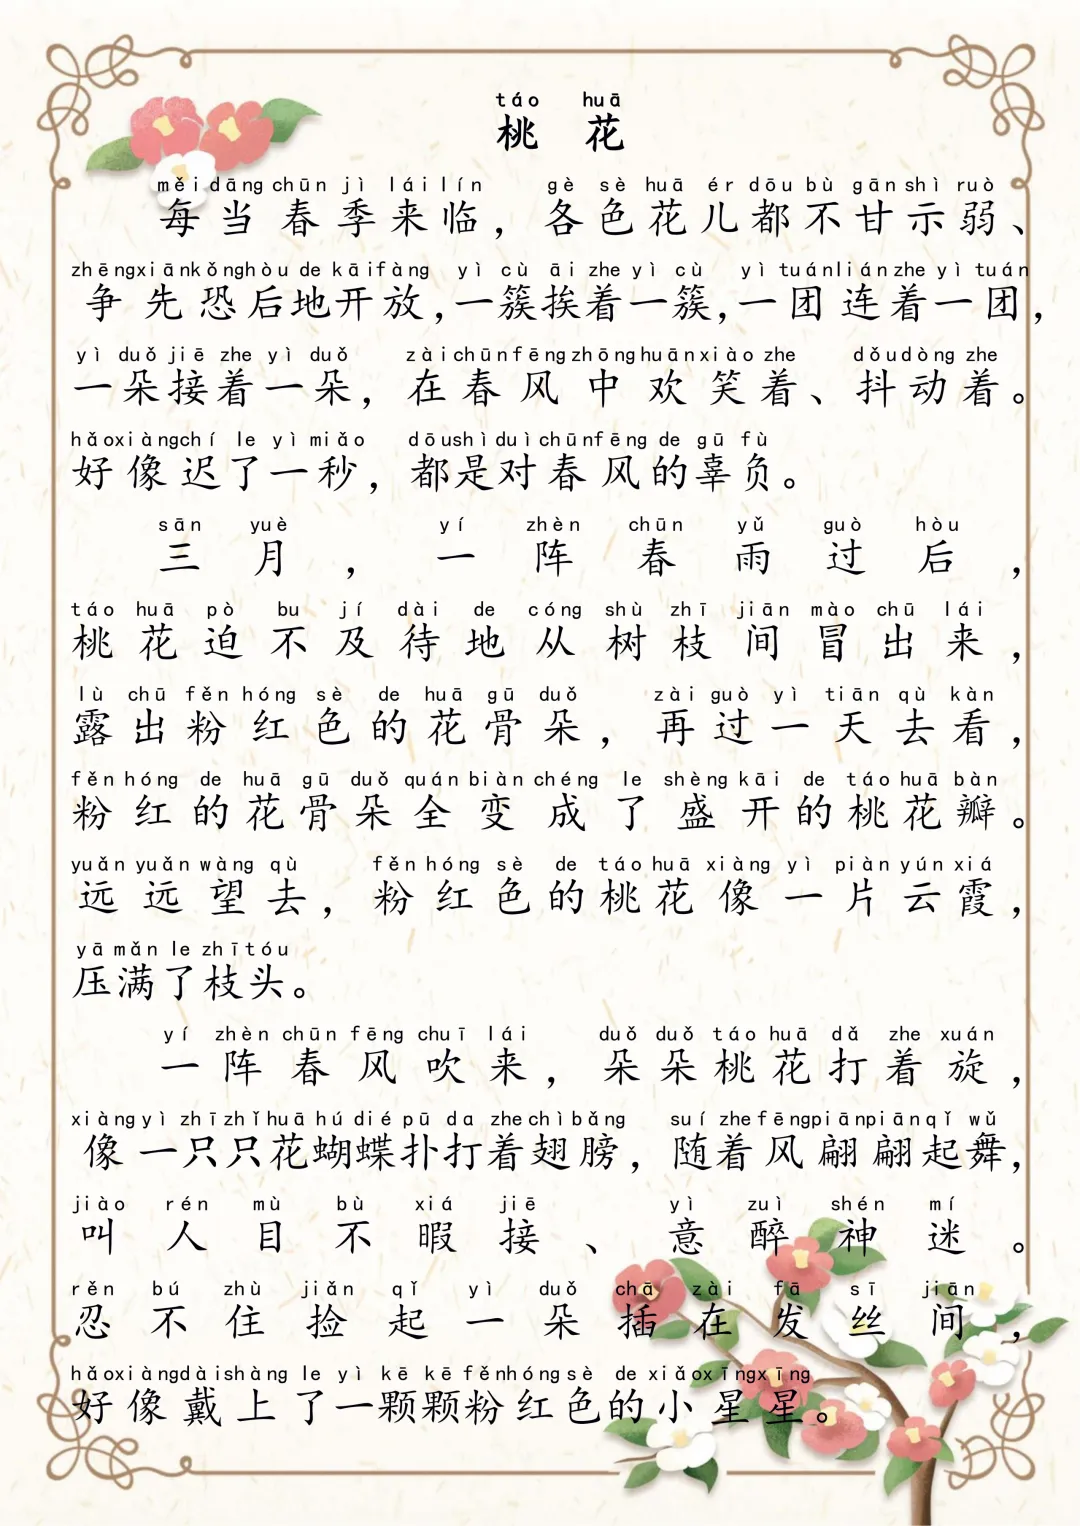 táo huā
桃 花
měi dāng chūn jì lái lín gè sè huā ér dōu bù gān shì ruò
每当春季来临，各色花儿都不甘示弱、
zhēng xiān kǒng hòu de kāi fàng yì cù āi zhe yì cù yì tuán lián zhe yì tuán
争先恐后地开放，一簇挨着一簇，一团连着一团，
yì duǒ jiē zhe yì duǒ zài chūn fēng zhōng huān xiào zhe dǒu dòng zhe
一朵接着一朵，在春风中欢笑着、抖动着。
hǎo xiàng chí le yì miǎo dōu shì duì chūn fēng de gū fù
好像迟了一秒，都是对春风的辜负。
sān yuè yí zhèn chūn yǔ guò hòu
三月，一阵春雨过后，
táo huā pò bu jí dài de cóng shù zhī jiān mào chū lái
桃花迫不及待地从树枝间冒出来，
lù chū fěn hóng sè de huā gū duǒ zài guò yì tiān qù kàn
露出粉红色的花骨朵，再过一天去看，
fěn hóng de huā gū duǒ quán biàn chéng le shèng kāi de táo huā bàn
粉红的花骨朵全变成了盛开的桃花瓣。
yuǎn yuǎn wàng qù fěn hóng sè de táo huā xiàng yì piàn yún xiá
远远望去，粉红色的桃花像一片云霞，
yā mǎn le zhī tóu
压满了枝头。
yí zhèn chūn fēng chuī lái duǒ duǒ táo huā dǎ zhe xuán
一阵春风吹来，朵朵桃花打着旋，
xiàng yì zhī zhǐ huā hú dié pū da zhe chì bǎng suí zhe fēng piān piān qǐ wǔ
像一只只花蝴蝶扑打着翅膀，随着风翩翩起舞，
jiào rén mù bù xiá jiē yì zuì shén mí
叫人目不暇接、意醉神迷。
rěn bú zhù jiǎn qǐ yì duǒ chā zài fā sī jiān
忍不住捡起一朵插在发丝间，
hǎo xiàng dài shàng le yì kē kē fěn hóng sè de xiǎo xīng xīng
好像戴上了一颗颗粉红色的小星星。